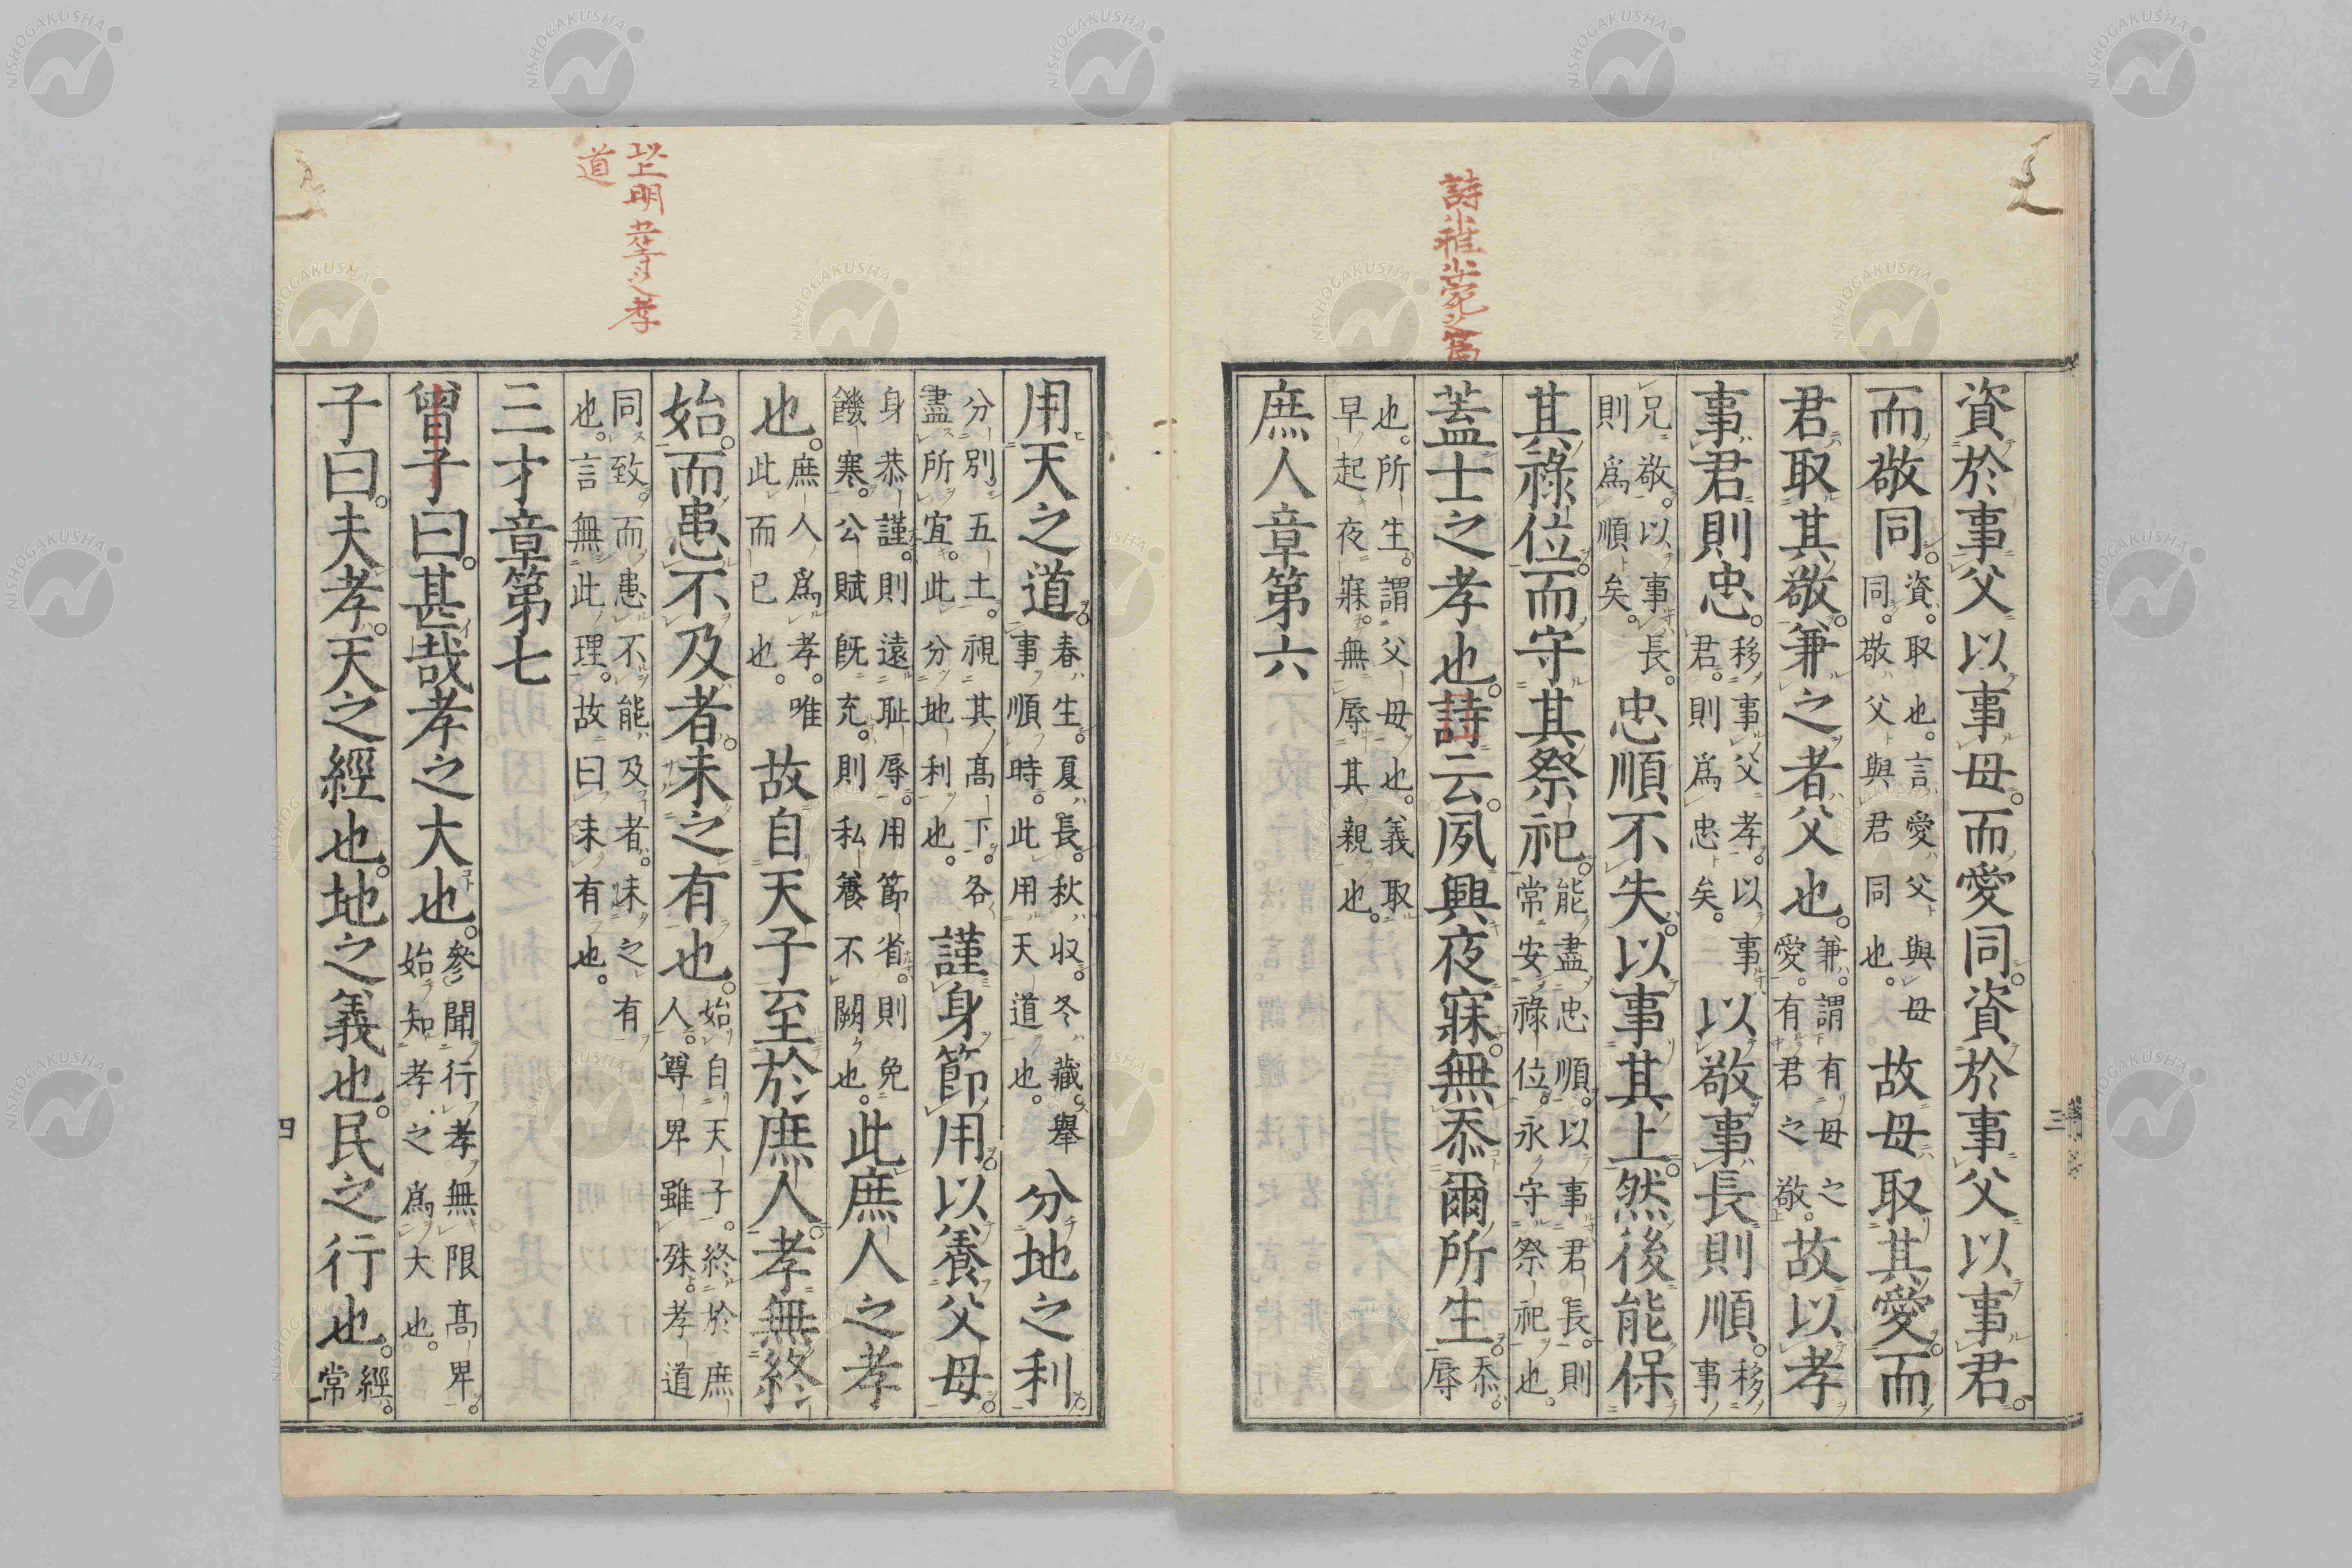 詩小雅小宛之篇
資於事父以事母。而愛同。資於事父以事君。
而敬同。資取也。言愛父與母同。敬父與君同也。故母取其愛。而
君取其敬。兼之者父也。兼。謂有母之愛。有君之敬。故以孝
事君則忠。移事父孝。以事君。則爲忠矣。以敬事長則順。移事
兄敬。以事長。則爲順矣。忠順不失。以事其上。然後能保
其祿位。而守其祭祀。能盡忠順。以事君長。則常安祿位。永守祭祀也。
蓋士之孝也。詩云。夙興夜寐。無忝爾所生。忝。辱
也。所生。謂父母也。義取早起夜寐。無辱其親也。
庶人章第六
三
以上明五等之孝
道
用天之道。春生。夏長。秋收。冬藏。擧事順時。此用天道也。分地之利。
分別五土。視其高下。各盡所宜。此分地利也。謹身節用。以養父母。
身恭謹。則遠耻辱。用節省。則免饑寒。公賦既充。則私養不闕也。此庶人之孝
也。庶人爲孝。唯此而已也。故自天子至於庶人。孝無終
始。而患不及者。未之有也。始自天子。終於庶人。尊卑雖殊。孝道
同致。而患不能及者。未之有也。言無此理。故曰未有也。
三才章第七
曾子曰。甚哉孝之大也。參聞行孝無限高卑。始知孝之爲大也。
子曰。夫孝。天之經也。地之義也。民之行也。經。常
四